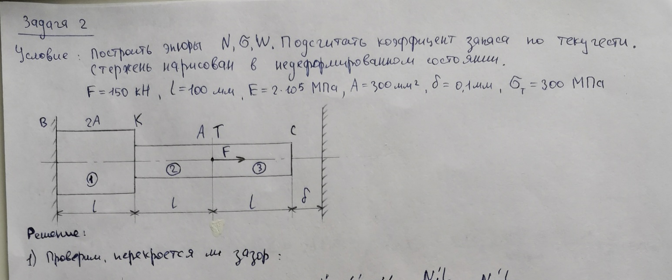 Задача 2
Условие: Построить эпюры N, σ, W. Подсчитать коэффицент запаса по текучести.
Стержень нарисован в недеформированном состоянии.
F=150 кН, l=100 мм, E=2·10⁵ МПа, A=300мм², δ=0,1мм, σт=300 МПа
B 2A K A T C
F
1 2 3
l l l δ
Решение:
1) Проверим, перекроется ли зазор: